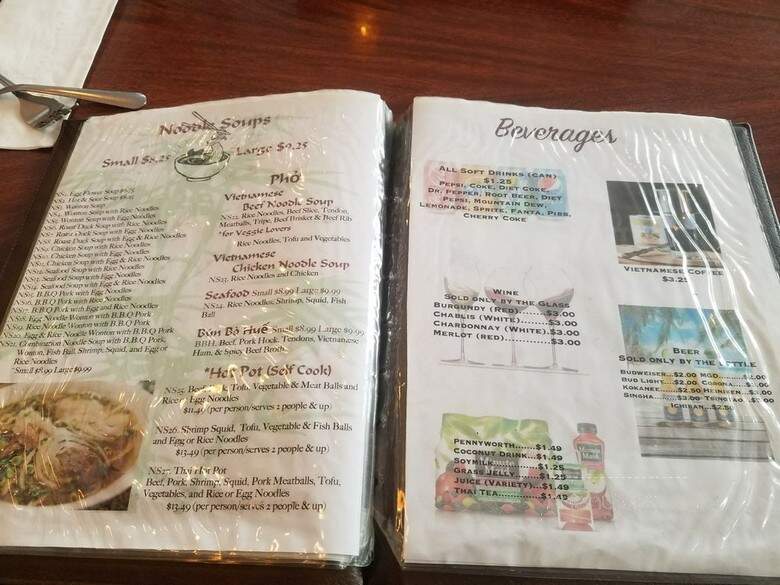 Noodle Soups
Small $8.25 Large $9.25
NS1. Egg Flower Soup
NS2. Hot & Sour Soup
NS3. Wonton Soup
NS4. Wonton Soup with Rice Noodles
NS5. Wonton Soup with Egg Noodles
NS6. Roast Duck Soup with Rice Noodles
NS7. Roast Duck Soup with Egg Noodles
NS8. Roast Duck Soup with Egg & Rice Noodles
NS9. Chicken Soup with Rice Noodles
NS10. Chicken Soup with Egg Noodles
NS11. Chicken Soup with Egg & Rice Noodles
NS12. Seafood Soup with Rice Noodles
NS13. Seafood Soup with Egg Noodles
NS14. Seafood Soup with Egg & Rice Noodles
NS15. B.B.Q Pork with Egg Noodles
NS16. B.B.Q Pork with Rice Noodles
NS17. B.B.Q Pork with Egg and Rice Noodles
NS18. Egg Noodle Wonton with B.B.Q Pork
NS19. Rice Noodle Wonton with B.B.Q Pork
NS20. Egg & Rice Noodle Wonton with B.B.Q Pork
NS21. Combination Noodle Soup with B.B.Q Pork,
Wonton, Fish Ball, Shrimp, Squid, and Egg or
Rice Noodles
*Small $8.99 Large $9.99
Phở
Vietnamese
Beef Noodle Soup
NS22. Rice Noodles, Beef Slice, Tendon,
Meatballs, Tripe, Beef Brisket & Beef Rib
*for Veggie Lovers
Rice Noodles, Tofu and Vegetables
Vietnamese
Chicken Noodle Soup
NS23. Rice Noodles and Chicken
Seafood Small $8.99 Large $9.99
NS24. Rice Noodles, Shrimp, Squid, Fish
Ball
Bún Bò Huế Small $8.99 Large $9.99
BBH. Beef, Pork Hock, Tendons, Vietnamese
Ham, & Spicy Beef Broth
*Hot Pot (Self Cook)
NS25. Beef, Tofu, Vegetable & Meat Balls and
Rice or Egg Noodles
$11.49 (per person/serves 2 people & up)
NS26. Shrimp Squid, Tofu, Vegetable & Fish Balls
and Egg or Rice Noodles
$13.49 (per person/serves 2 people & up)
NS27. Thai Hot Pot
Beef, Pork, Shrimp, Squid, Pork Meatballs, Tofu,
Vegetables, and Rice or Egg Noodles
$13.49 (per person/serves 2 people & up)
Beverages
ALL SOFT DRINKS (CAN)
$1.25
PEPSI, COKE, DIET COKE,
DR. PEPPER, ROOT BEER, DIET
PEPSI, MOUNTAIN DEW,
LEMONADE, SPRITE, FANTA, PIBB,
CHERRY COKE
VIETNAMESE COFFEE
$3.25
WINE
SOLD ONLY BY THE GLASS
BURGUNDY (RED)..........$3.00
CHABLIS (WHITE)..........$3.00
CHARDONNAY (WHITE).$3.00
MERLOT (RED)..............$3.00
BEER
SOLD ONLY BY THE BOTTLE
BUDWEISER...$2.00 MGD..........$2.00
BUD LIGHT....$2.00 CORONA.....$3.00
KOKANEE.......$2.50 HEINEKEN..$3.00
SINGHA.........$3.00 TSINGTAO..$3.00
ICHIBAN....$2.50
PENNYWORTH.......$1.49
COCONUT DRINK...$1.49
SOYMILK..............$1.25
GRASS JELLY........$1.25
JUICE (VARIETY)...$1.49
THAI TEA.............$1.49